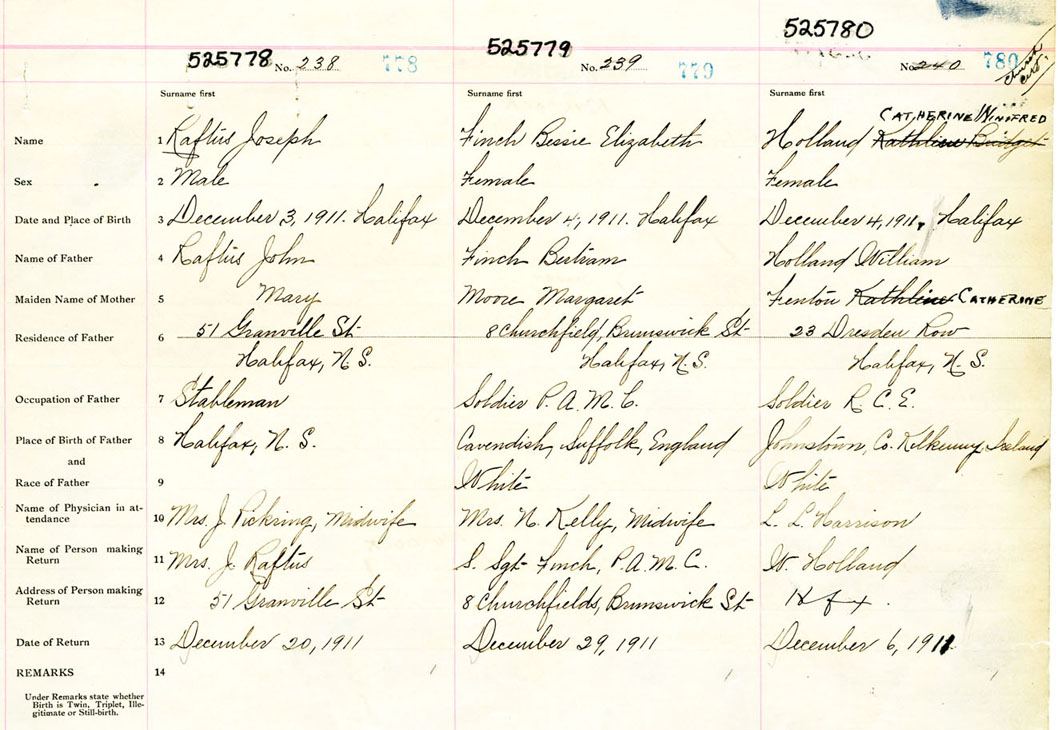 525778 No. 238 778
525779 No. 239 779
525780 No. 240 780
church cert.
Surname first Surname first Surname first
CATHERINE WINIFRED
Name 1 Raftus Joseph Finch Bessie Elizabeth Holland Kathline Bridget
Sex 2 Male Female Female
Date and Place of Birth 3 December 3, 1911. Halifax December 4, 1911. Halifax December 4, 1911, Halifax
Name of Father 4 Raftus John Finch Bertram Holland William
Maiden Name of Mother 5 Mary Moore Margaret Fenton Kathline CATHERINE
Residence of Father 6 51 Granville St 8 Churchfield, Brunswick St 23 Dresden Row
Halifax, N.S. Halifax, N.S. Halifax, N.S.
Occupation of Father 7 Stableman Soldier P.A.M.C. Soldier R.C.E.
Place of Birth of Father 8 Halifax, N.S. Cavendish, Suffolk, England Johnstown, Co. Kilkenny, Ireland
and
Race of Father 9 White White
Name of Physician in at-
tendance 10 Mrs. J. Pickring, Midwife Mrs. N. Kelly, Midwife L. L. Harrison
Name of Person making
Return 11 Mrs. J. Raftus S. Sgt Finch, P.A.M.C. W. Holland
Address of Person making
Return 12 51 Granville St 8 Churchfields, Brunswick St Hfx.
Date of Return 13 December 20, 1911 December 29, 1911 December 6, 1911
REMARKS 14
Under Remarks state whether
Birth is Twin, Triplet, Ille-
gitimate or Still-birth.